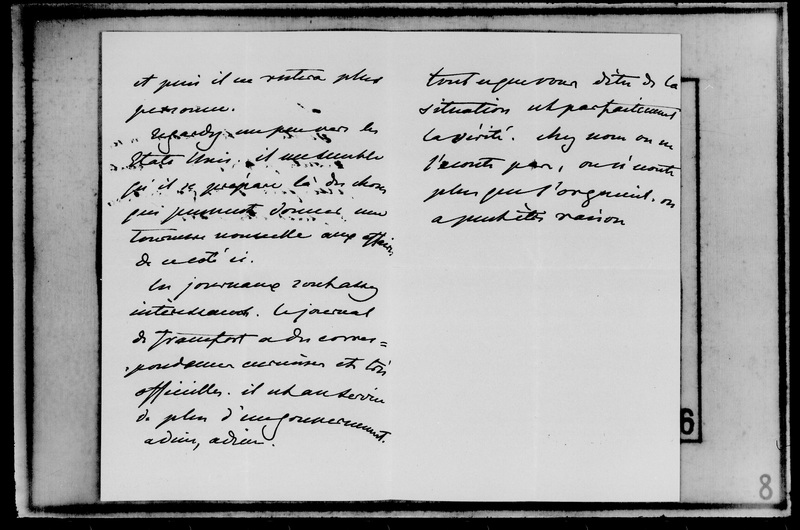 et puis il ne restera plus
personne.
regardez un peu vers les
Etats Unis. il me semble
qu'il se prépare là des choses
qui peuvent donner une
tournure nouvelle aux affaires
de ce coté ci.
les journaux sont assez
intéressants. le journal
de francfort a des corres=
pondances curieuses et très
officielles. il est au service
de plus d'un gouvernement.
adieu, adieu.
tout ce que vous dites de la
situation est parfaitement
la vérité. chez nous on ne
l'écoute pas, on n'écoute
plus que l'orgueil. on
a peut être raison
6
8